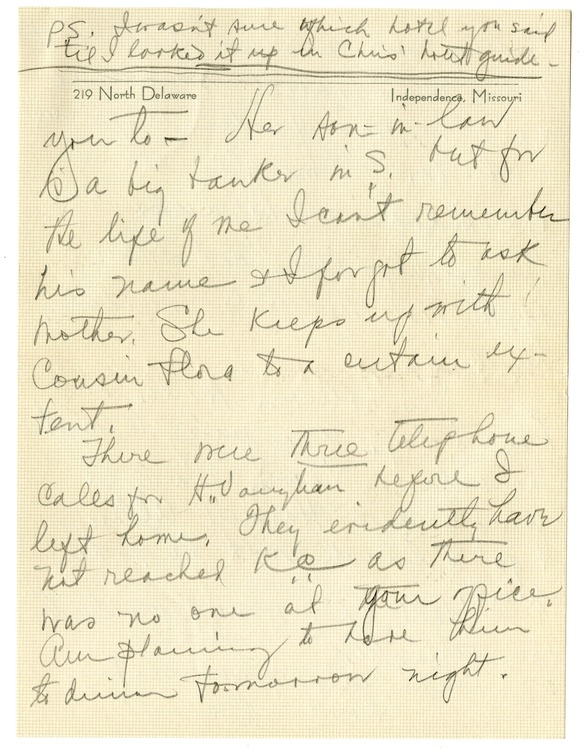 PS. I wasn't sure which hotel you said
til I looked it up in Chris' hotel guide -
219 North Delaware
Independence, Missouri
you to - Her son-in-law
is a big banker in S. but for
the life of me I can't remember
his name & I forgot to ask
mother. She keeps up with
Cousin Flora to a certain ex-
tent.
There were three telephone
calls for H. Vaughan before I
left home. They evidently have
not reached K.C. as there
was no one at your office.
Am planning to have them
to dinner tomorrow night.